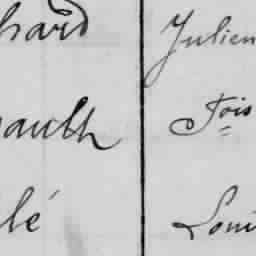 hard Julien
ault Fois
lé Loui